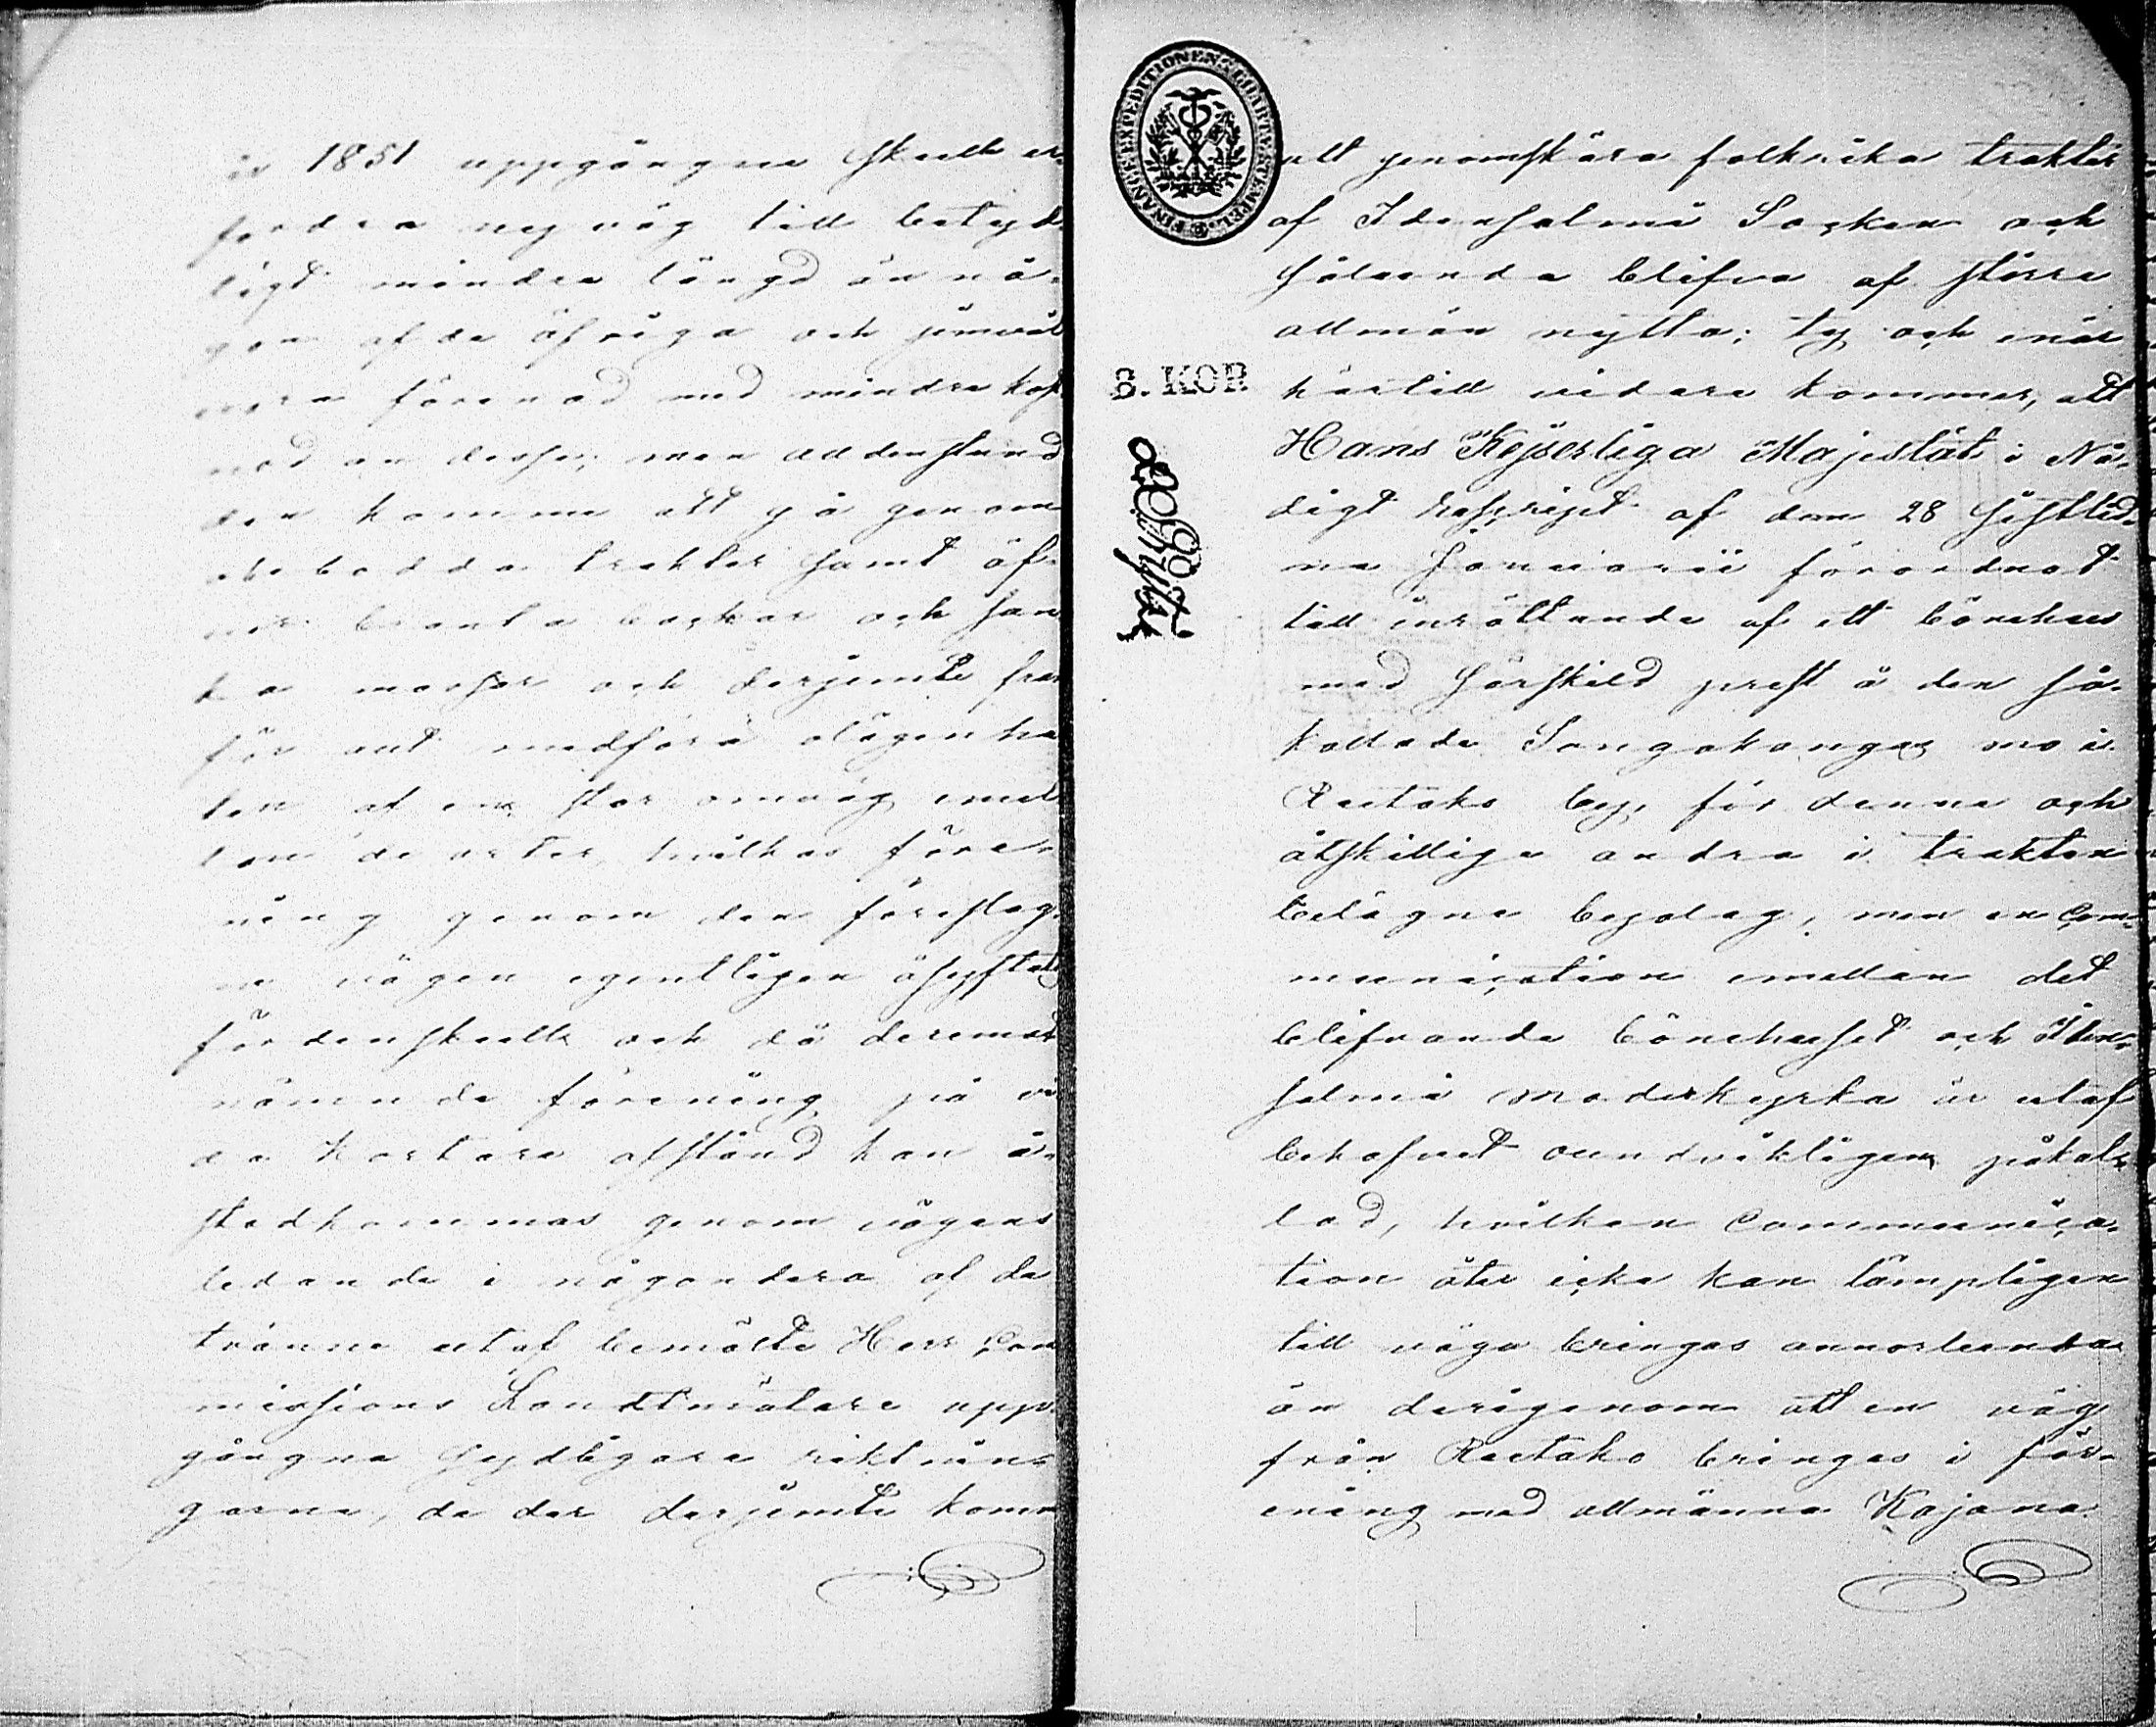 år 1851 uppgångne skulle er-
fordra ny väg till betyd-
ligt mindre längd än nå-
gon af de öfriga och jemväl
vara förenad med mindre kost-
nad än desse; men alldenstund
den komme att gå genom
obebodda trakter samt öf-
ver branta backar och san-
ka mossar och derjemte fram-
för allt medföra olägenhe-
ten af en stor omväg emel-
lan de orter, hvilkas före-
ning genom den föreslag-
ne vägen egentligen åsyftas
fördenskull och då deremot
nämnde förening på vi-
da kortare afstånd kan å-
stadkommas genom vägens
ledande i någondera af de
tvänne utaf bemälte Herr Com-
missions Landtmätare upp-
gångna sydligare riktnin-
garne, de der derjemte komma
FINANCE EXPEDITIONENS CHARTÆ STEMPEL
att genomskära folkrika trakter
af Idensalmi Socken och
sålunda blifva af större
allmän nytta; ty och enär
8. KOP. härtill vidare kommer, att
Hans Kejserliga Majestät i Nå-
digt Rescript af den 28 sistlid-
ne Januarii förordnat
till inrättande af ett bönehus
med särskild prest å den så-
kallade Songakangas mo i
Rutako by, för denne och
åtskillige andra i trakten
belägne byalag, men en Com-
munication emellan det
blifvande bönehuset och Iden-
salmi moderkyrka är utaf
behofvet oundvikligen påkal-
lad, hvilken Communica-
tion åter icke kan lämpligen
till väga bringas annorlunda
än derigenom att en väg
från Rutako bringas i för-
ening med allmänna Kajana